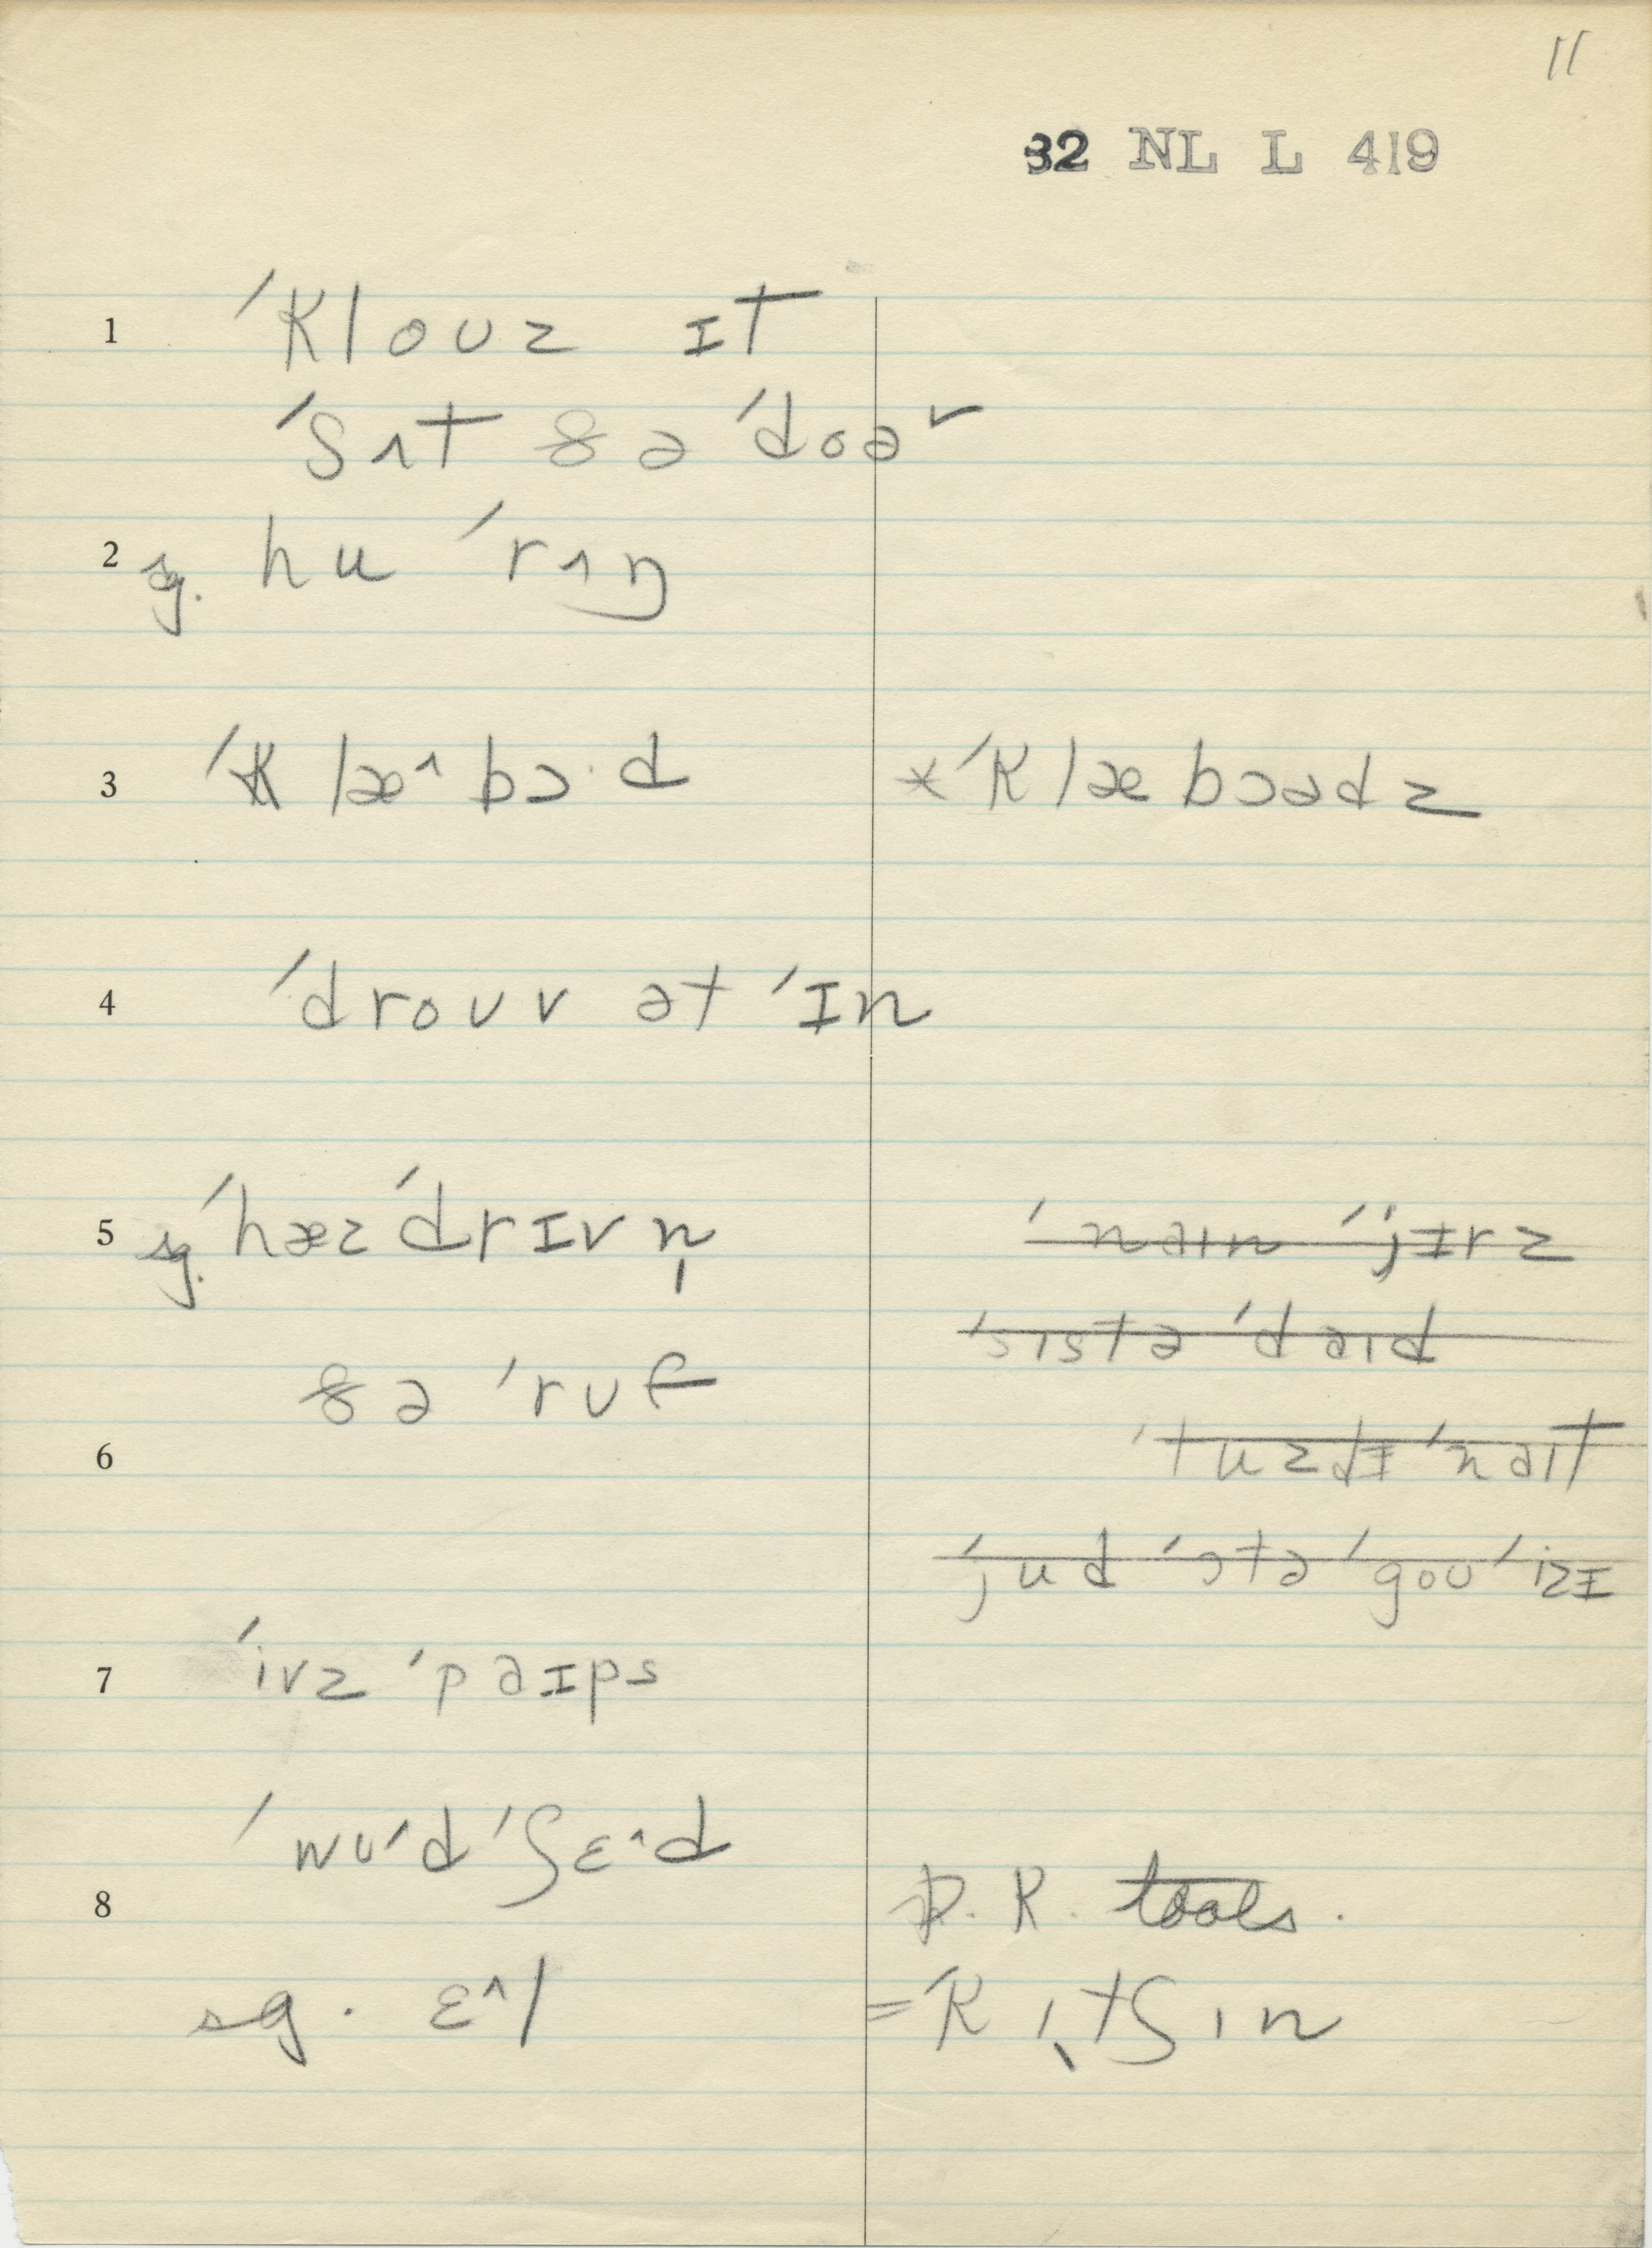 11
32 NL L 419
1 ˈklouz ɪt
ˈʃʌt ðə ˈdoəʳ
2 sg. hu ˈrʌŋ
3 ˈklæ^bɔ·d *ˈklæbɔədz
4 ˈdrouv ət ˈɪn
5 sg. ˈhæz ˈdrɪvn̩ ˈnaɪn ˈjɪrz
ˈsɪstə ˈdaɪd
ðə ˈruf
6 ˈtuzdɪ ˈnaɪt
ˈjud ˈɔtə ˈgou ˈizɪ
7 ˈivz ˈpəɪps
ˈwʊ^d ˈʃɛ^d
8 D. K. tools.
sg. ɛ^l =ˈkɪˎtʃɪn